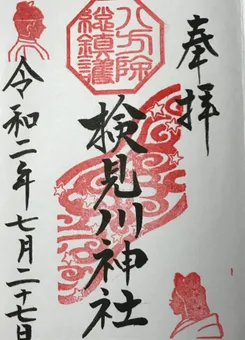 奉拝
八方除
總鎮護
検見川神社
令和二年七月二十七日